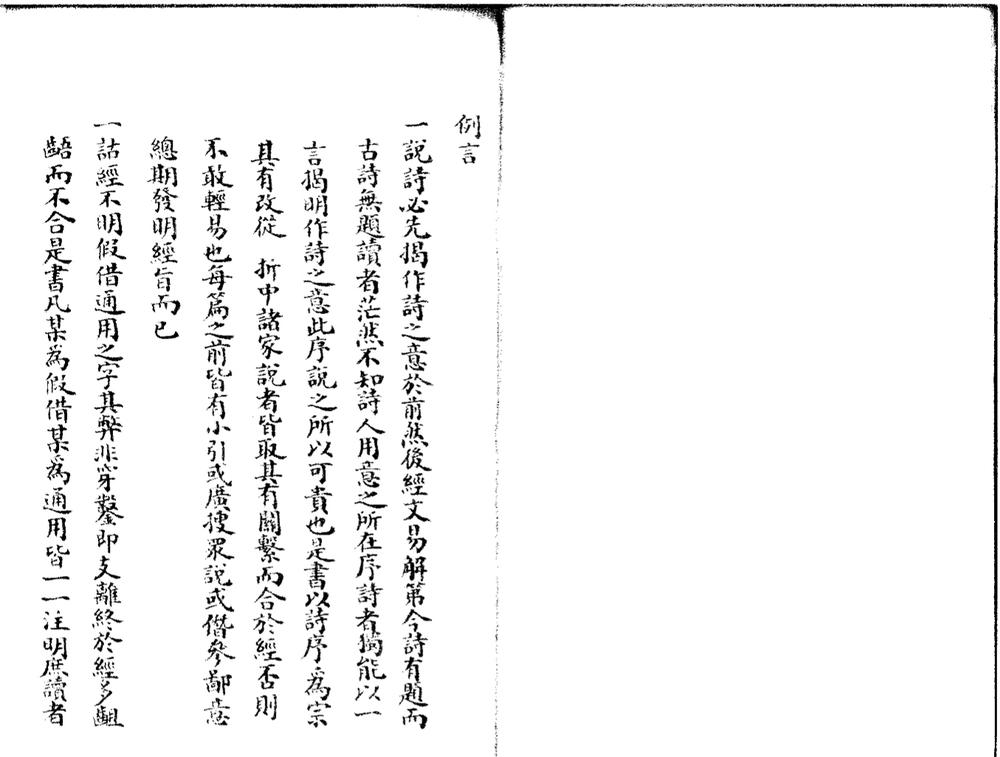 例言
一說詩必先揭作詩之意於前然後經文易解第今詩有題而
古詩無題讀者茫然不知詩人用意之所在序詩者獨能以一
言揭明作詩之意此序說之所以可貴也是書以詩序為宗
其有改從 折中諸家說者皆取其有關繫而合於經否則
不敢輕易也每篇之前皆有小引或廣搜眾說或僭參鄙意
總期發明經旨而已
一詁經不明假借通用之字其弊非穿鑿即支離終於經多齟
齬而不合是書凡某為假借某為通用皆一一注明庶讀者